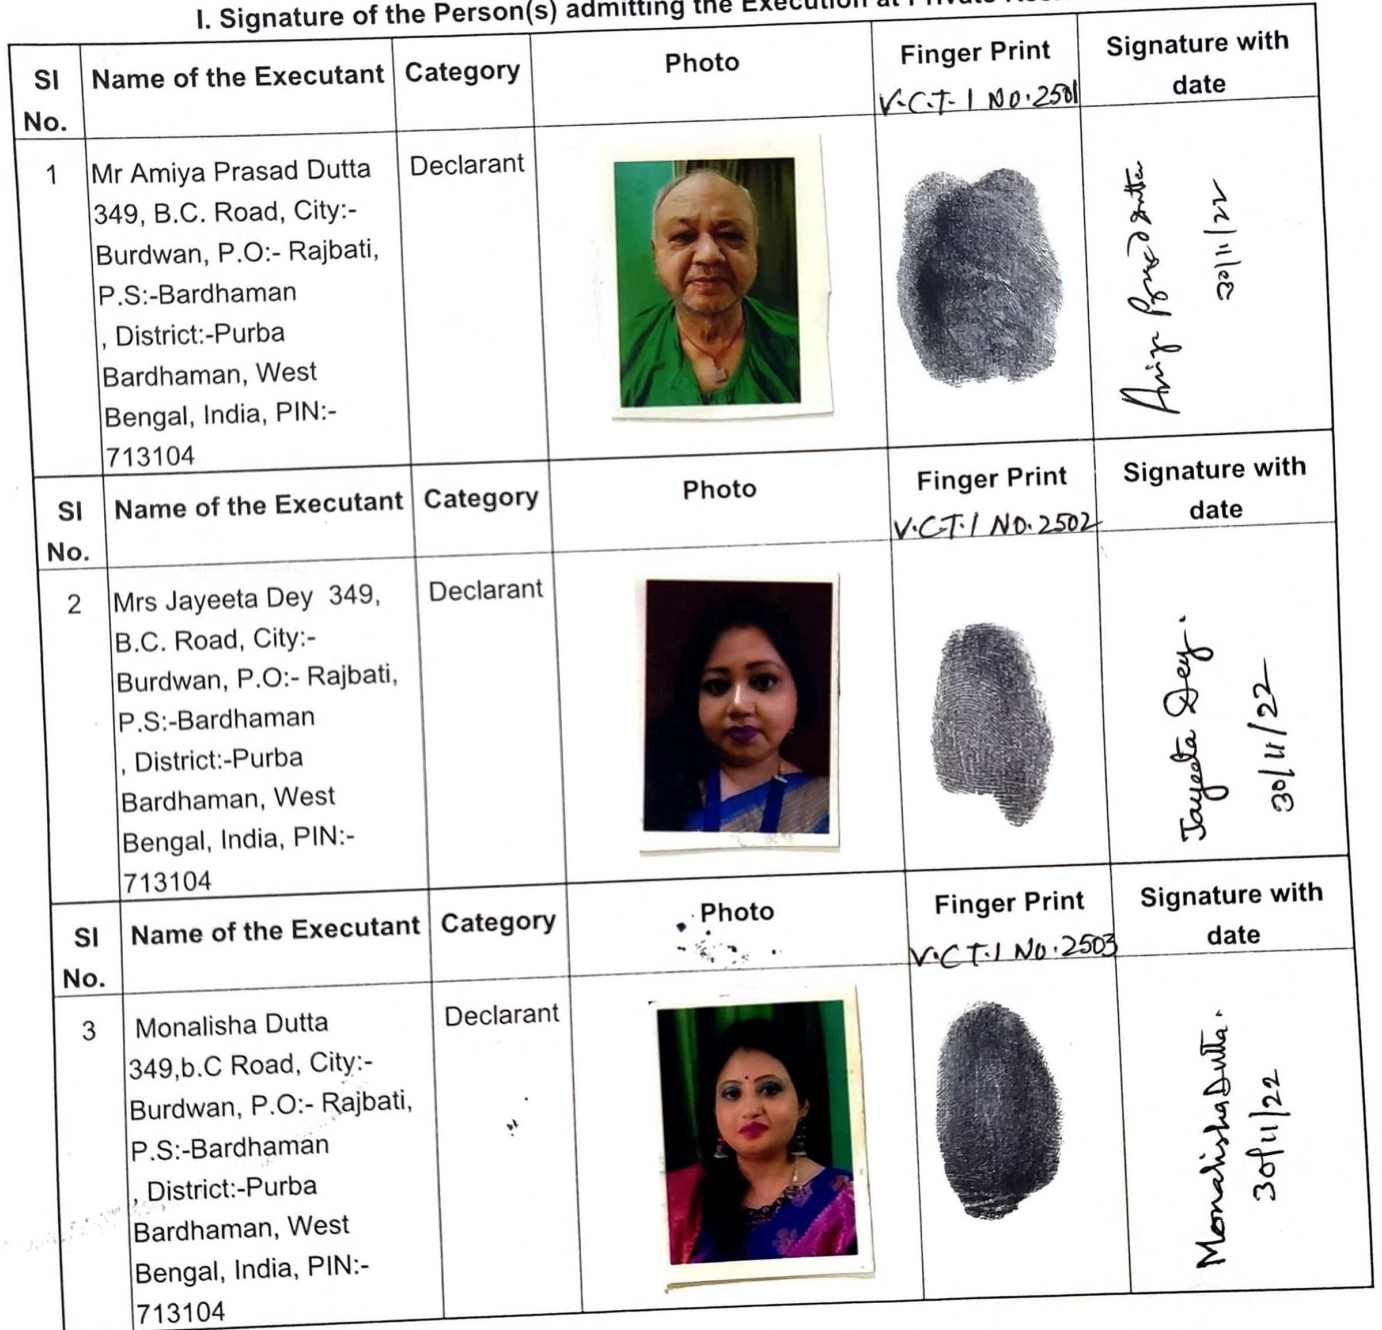 I. Signature of the Person(s) admitting the Execution at Private
Sl No. Name of the Executant Category Photo Finger Print Signature with date
V.C.T. 1 No. 2501
1 Mr Amiya Prasad Dutta Declarant
349, B.C. Road, City:-
Burdwan, P.O:- Rajbati,
P.S:-Bardhaman
, District:-Purba
Bardhaman, West
Bengal, India, PIN:-
713104
Prasad Dutta
30/11/22
Sl No. Name of the Executant Category Photo Finger Print Signature with date
V.C.T. 1 No. 2502
2 Mrs Jayeeta Dey 349, Declarant
B.C. Road, City:-
Burdwan, P.O:- Rajbati,
P.S:-Bardhaman
, District:-Purba
Bardhaman, West
Bengal, India, PIN:-
713104
Jayeeta Dey.
30/11/22
Sl No. Name of the Executant Category Photo Finger Print Signature with date
V.C.T. 1 No. 2503
3 Monalisha Dutta Declarant
349,b.C Road, City:-
Burdwan, P.O:- Rajbati,
P.S:-Bardhaman
, District:-Purba
Bardhaman, West
Bengal, India, PIN:-
713104
Monalisha Dutta.
30/11/22